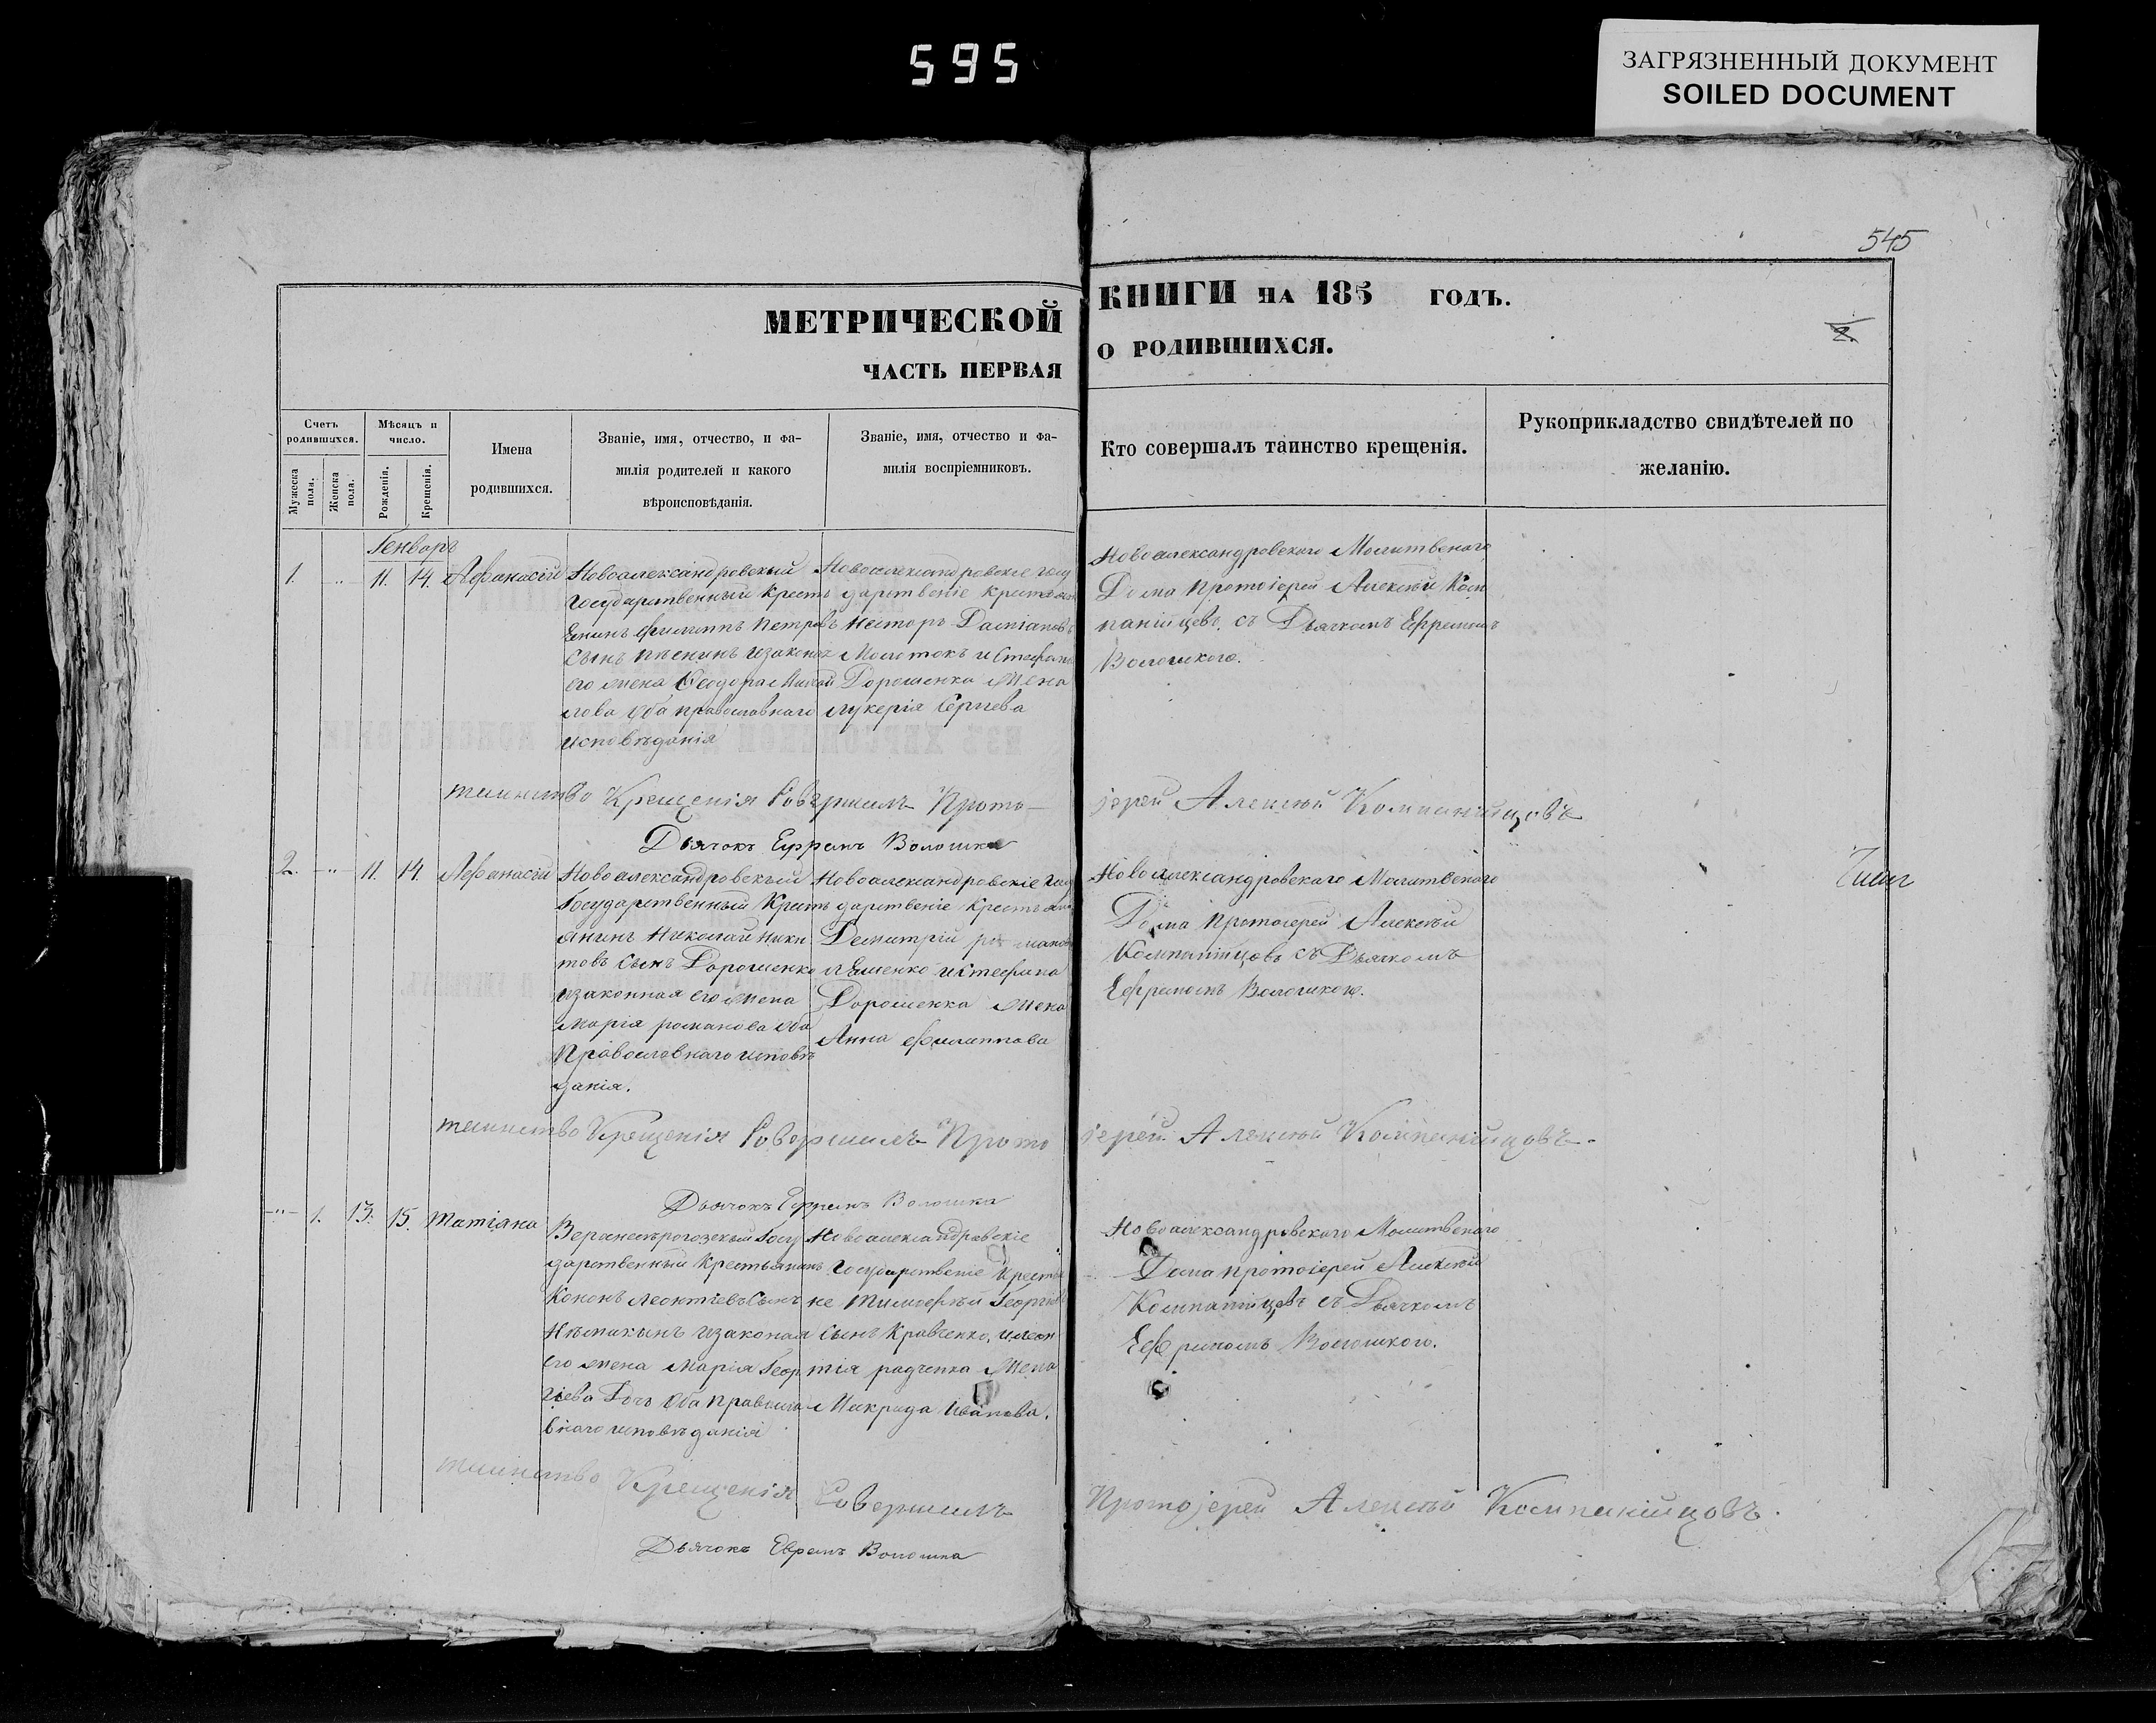 595
ЗАГРЯЗНЕННЫЙ ДОКУМЕНТ
SOILED DOCUMENT
545
МЕТРИЧЕСКОЙ КНИГИ НА 185 ГОДЪ.
ЧАСТЬ ПЕРВАЯ О РОДИВШИХСЯ.
2.
Счетъ родившихся.
Мужеска пола.
Женска пола.
Мѣсяцъ и число.
Рожденія.
Крещенія.
Имена
родившихся.
Званіе, имя, отчество, и фа-
милія родителей и какого
вѣроисповѣданія.
Званіе, имя, отчество и фа-
милія воспріемниковъ.
Кто совершалъ таинство крещенія.
Рукоприкладство свидѣтелей по
желанію.
Генваръ
1. „ 11. 14. Афанасій
Новоалександровскый
Государственный Кресть
Филиппъ Петровъ
Сынъ
его жена Ѳеодора Михай
лова Оба православнаго
исповѣданія
Новоалександровскіе Госу
дарствениіе Крестьяне
Несторъ Даміановъ
Молотокъ и Стефана
Дорошенка Жена
Лукерія Сергіева
Новоалександровскаго Молитвенаго
Дома Протоіерей Алексѣй Ком
паніицевъ. съ Дьячкомъ Ефремомъ
Волошкого.
таинство Крещенія Совершилъ Прото-
іерей Алексѣй Компанійцовъ
Дьячокъ Ефремъ Волошка
2. „ 11. 14. Афанасій
Новоалександровскый
Государственный Кресть
янинъ Николай Ники
товъ Сынъ Дорошенко
изаконная его жена
Марія романова Оба
Православнаго исповѣ
данія.
Новоалександровскіе Госу
дарствениіе Крестьяне
Демитрій романовъ
Ляшенко и Стефана
Дорошенка жена
Анна Филиппова
Новоалександровскаго Молитвенаго
Дома Протоіерей Алексѣй
Компаніицовъ съ Дьячкомъ
Ефремомъ Волошкою.
таинство Крещенія Совершилъ Прото
іерей Алексѣй Компанійцовъ.
Дьячокъ Ефремъ Волошка
„ 1. 13. 15. Татіяна
Госу
дарственный Крестьянинъ
Кононъ Леонтіевъ Сынъ
изаконая
его жена Марія Геор
гіева Дочь Оба Правосла
внаго исповѣданія
Новоалександровскіе
Государствениіе Крестья
не Тимофѣй Георгіевъ
Сынъ Кравченко, и Леон
тія радченка Жена
Макрида Иванова.
Новоалександровскаго Молитвенаго
Дома протоіерей Алексѣй
Компаніицовъ съ Дьячкомъ
Ефремомъ Волошкого.
таинство Крещенія Совершилъ
Протоіерей Алексѣй Компанійцовъ.
Дьячокъ Ефремъ Волошка